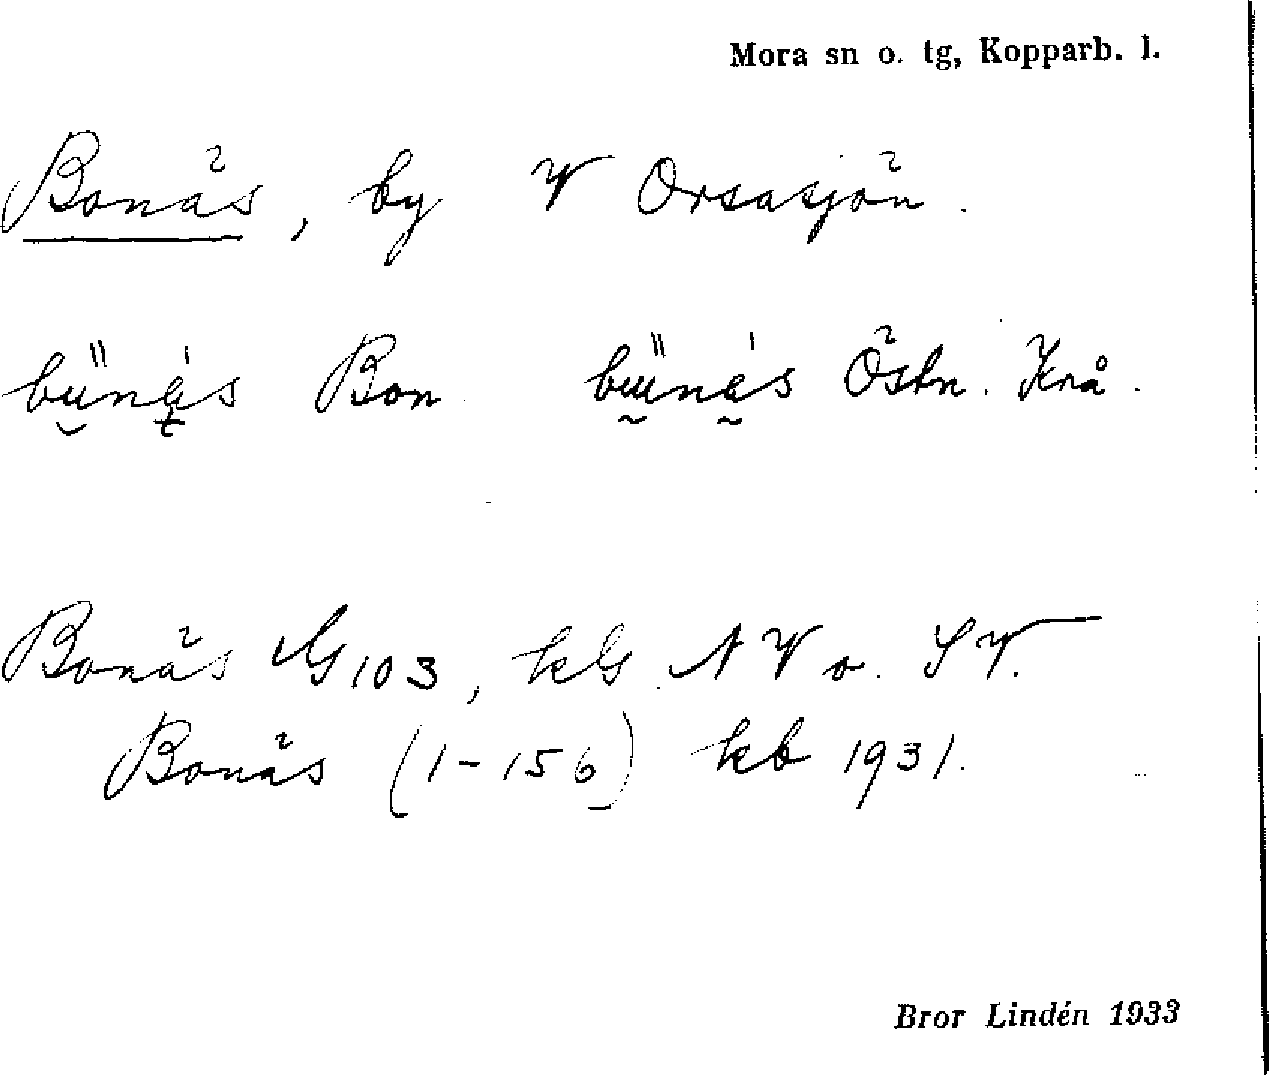 Mora sn o. tg, Kopparb. l.
Bonäs, by V Orsasjön.
Bon Östn. Krå.
Bonäs G 103, kG NV o. SV.
Bonäs (1-156) kb 1931.
Bror Lindén 1933